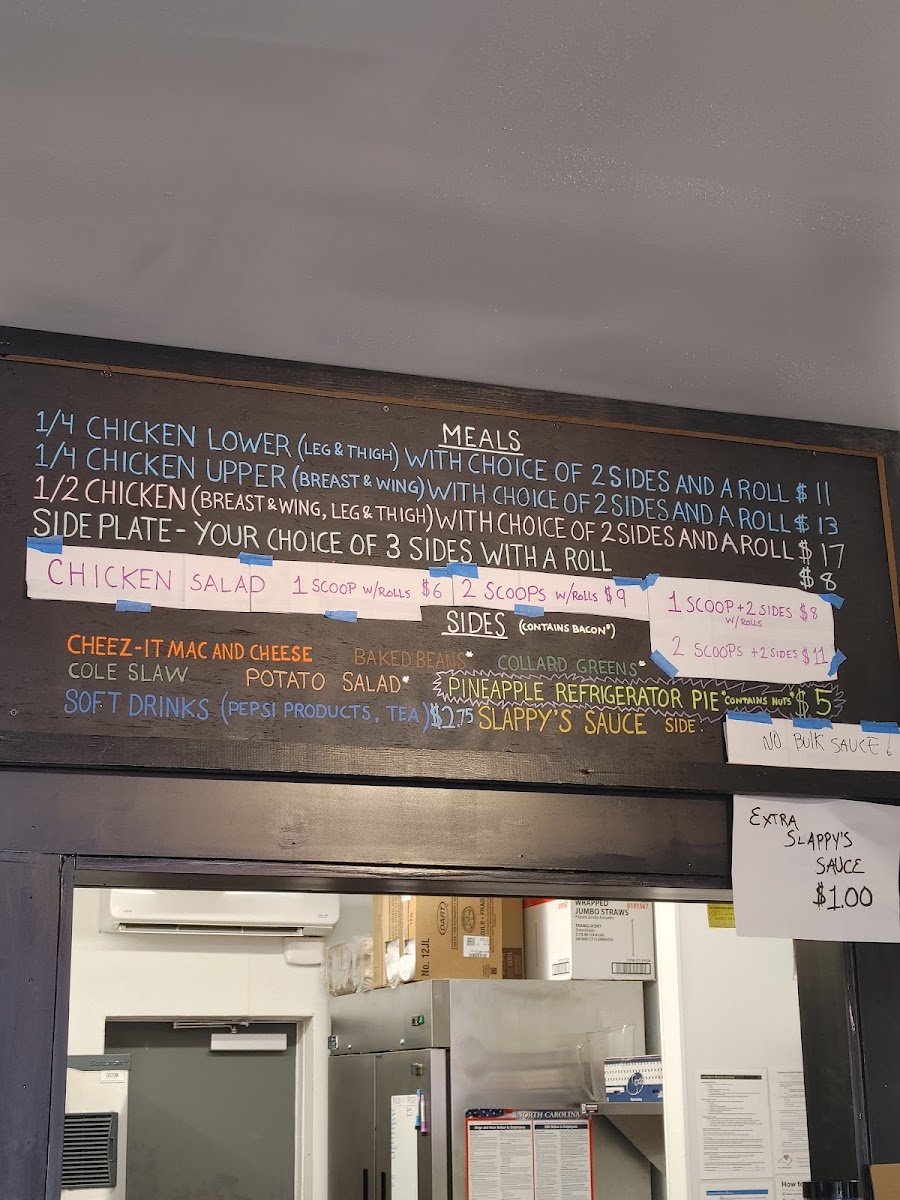 MEALS
1/4 CHICKEN LOWER (LEG & THIGH) WITH CHOICE OF 2 SIDES AND A ROLL $11
1/4 CHICKEN UPPER (BREAST & WING) WITH CHOICE OF 2 SIDES AND A ROLL $13
1/2 CHICKEN (BREAST & WING, LEG & THIGH) WITH CHOICE OF 2 SIDES AND A ROLL $17
SIDE PLATE - YOUR CHOICE OF 3 SIDES WITH A ROLL $8
CHICKEN SALAD 1 SCOOP W/ROLLS $6 2 SCOOPS W/ROLLS $9
1 SCOOP + 2 SIDES $8
W/ROLLS
2 SCOOPS + 2 SIDES $11
SIDES (CONTAINS BACON*)
CHEEZ-IT MAC AND CHEESE BAKED BEANS* COLLARD GREENS*
COLE SLAW POTATO SALAD* PINEAPPLE REFRIGERATOR PIE *CONTAINS NUTS* $5
SOFT DRINKS (PEPSI PRODUCTS, TEA) $2.75 SLAPPY'S SAUCE SIDE.
NO BULK SAUCE!
EXTRA
SLAPPY'S
SAUCE
$1.00
DART
No. 12JL
WRAPPED
JUMBO STRAWS
0191567
TRANSLUCENT
NORTH CAROLINA
How to